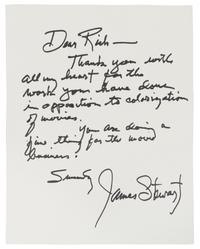 Dear Rich—
Thank you with
all my heart for the
work you have done
in opposition to colorization
of movies.
You are doing a
fine thing for the movie
business!
Sincerely
James Stewart